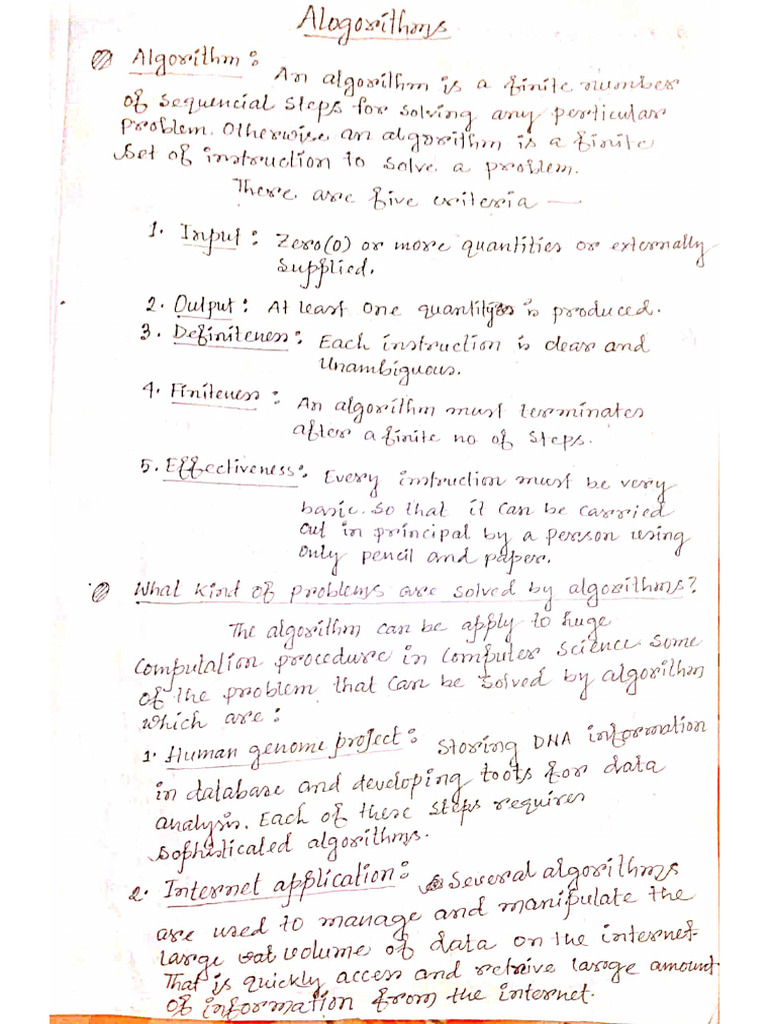 Alogorithms
Algorithm:
An algorithm is a finite number
of sequencial steps for solving any perticular
problem. Otherwise an algorithm is a finite
set of instruction to solve a problem.
There are five criteria —
1. Input: Zero(0) or more quantities or externally
supplied.
2. Output: At least one quantity is produced.
3. Definiteness: Each instruction is clear and
Unambiguous.
4. Finiteness: An algorithm must terminates
after a finite no of steps.
5. Effectiveness: Every instruction must be very
basic. So that it can be carried
out in principal by a person using
only pencil and paper.
What kind of problems are solved by algorithms?
The algorithm can be apply to huge
Computation procedure in computer science some
of the problem that can be solved by algorithm
which are:
1. Human genome project: Storing DNA information
in database and developing tools for data
analysis. Each of these steps requires
sophisticated algorithms.
2. Internet application: Several algorithms
are used to manage and manipulate the
large volume of data on the internet.
That is quickly access and retrive large amount
of information from the internet.